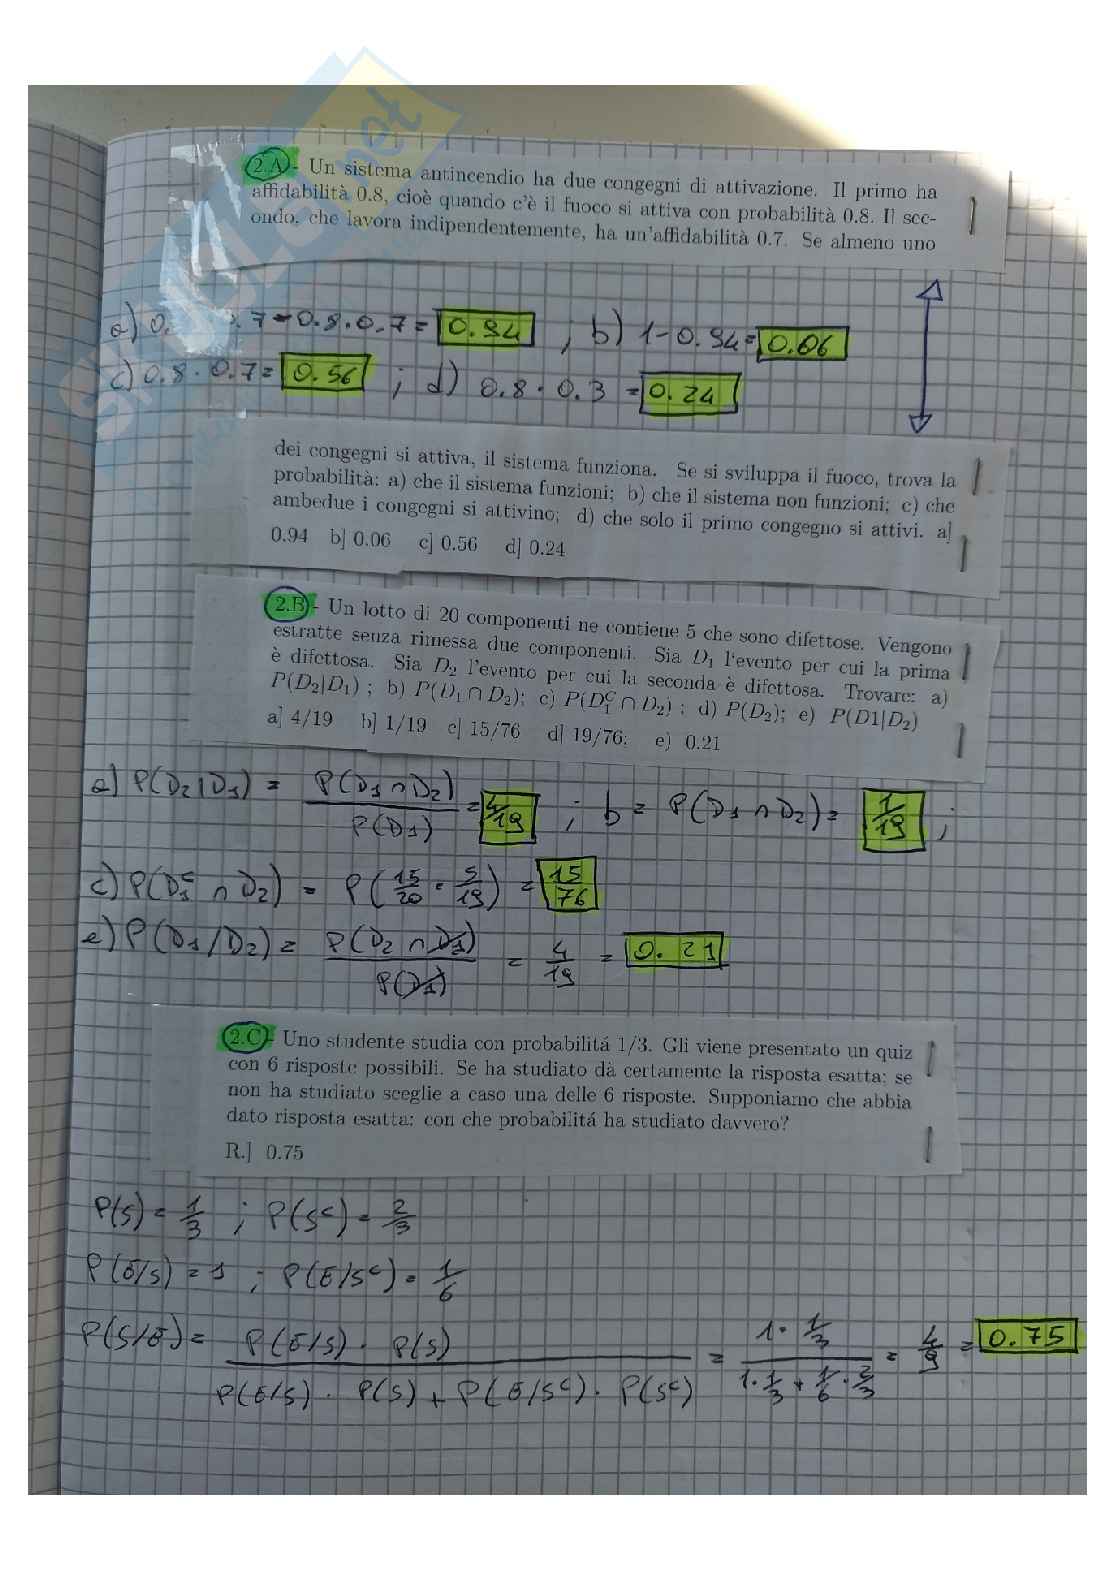 2.A - Un sistema antincendio ha due congegni di attivazione. Il primo ha
affidabilità 0.8, cioè quando c'è il fuoco si attiva con probabilità 0.8. Il sec-
ondo, che lavora indipendentemente, ha un'affidabilità 0.7. Se almeno uno
a) 0. .7-0.8·0.7= 0.94 ; b) 1-0.94= 0.06
c) 0.8·0.7= 0.56 ; d) 0.8·0.3 = 0.24
dei congegni si attiva, il sistema funziona. Se si sviluppa il fuoco, trova la
probabilità: a) che il sistema funzioni; b) che il sistema non funzioni; c) che
ambedue i congegni si attivino; d) che solo il primo congegno si attivi. a]
0.94 b] 0.06 c] 0.56 d] 0.24
2.B - Un lotto di 20 componenti ne contiene 5 che sono difettose. Vengono
estratte senza rimessa due componenti. Sia D1 l'evento per cui la prima
è difettosa. Sia D2 l'evento per cui la seconda è difettosa. Trovare: a)
P(D2|D1) ; b) P(D1 ∩ D2); c) P(D1^C ∩ D2) ; d) P(D2); e) P(D1|D2)
a] 4/19 b] 1/19 c] 15/76 d] 19/76; e) 0.21
a) P(D2|D1) = P(D1 ∩ D2) / P(D1) = 4/19 ; b = P(D1 ∩ D2) = 1/19 ;
c) P(D1^c ∩ D2) = P(15/20 · 5/19) = 15/76
e) P(D1/D2) = P(D2 ∩ D1) / P(D1) = 4/19 = 0.21
2.C - Uno studente studia con probabilitá 1/3. Gli viene presentato un quiz
con 6 risposte possibili. Se ha studiato dà certamente la risposta esatta; se
non ha studiato sceglie a caso una delle 6 risposte. Supponiamo che abbia
dato risposta esatta: con che probabilitá ha studiato davvero?
R.] 0.75
P(S) = 1/3 ; P(S^c) = 2/3
P(E/S) = 1 ; P(E/S^c) = 1/6
P(S/E) = P(E/S) · P(S) / P(E/S) · P(S) + P(E/S^c) · P(S^c) = 1 · 1/3 / 1 · 1/3 + 1/6 · 2/3 = 4/9 = 0.75